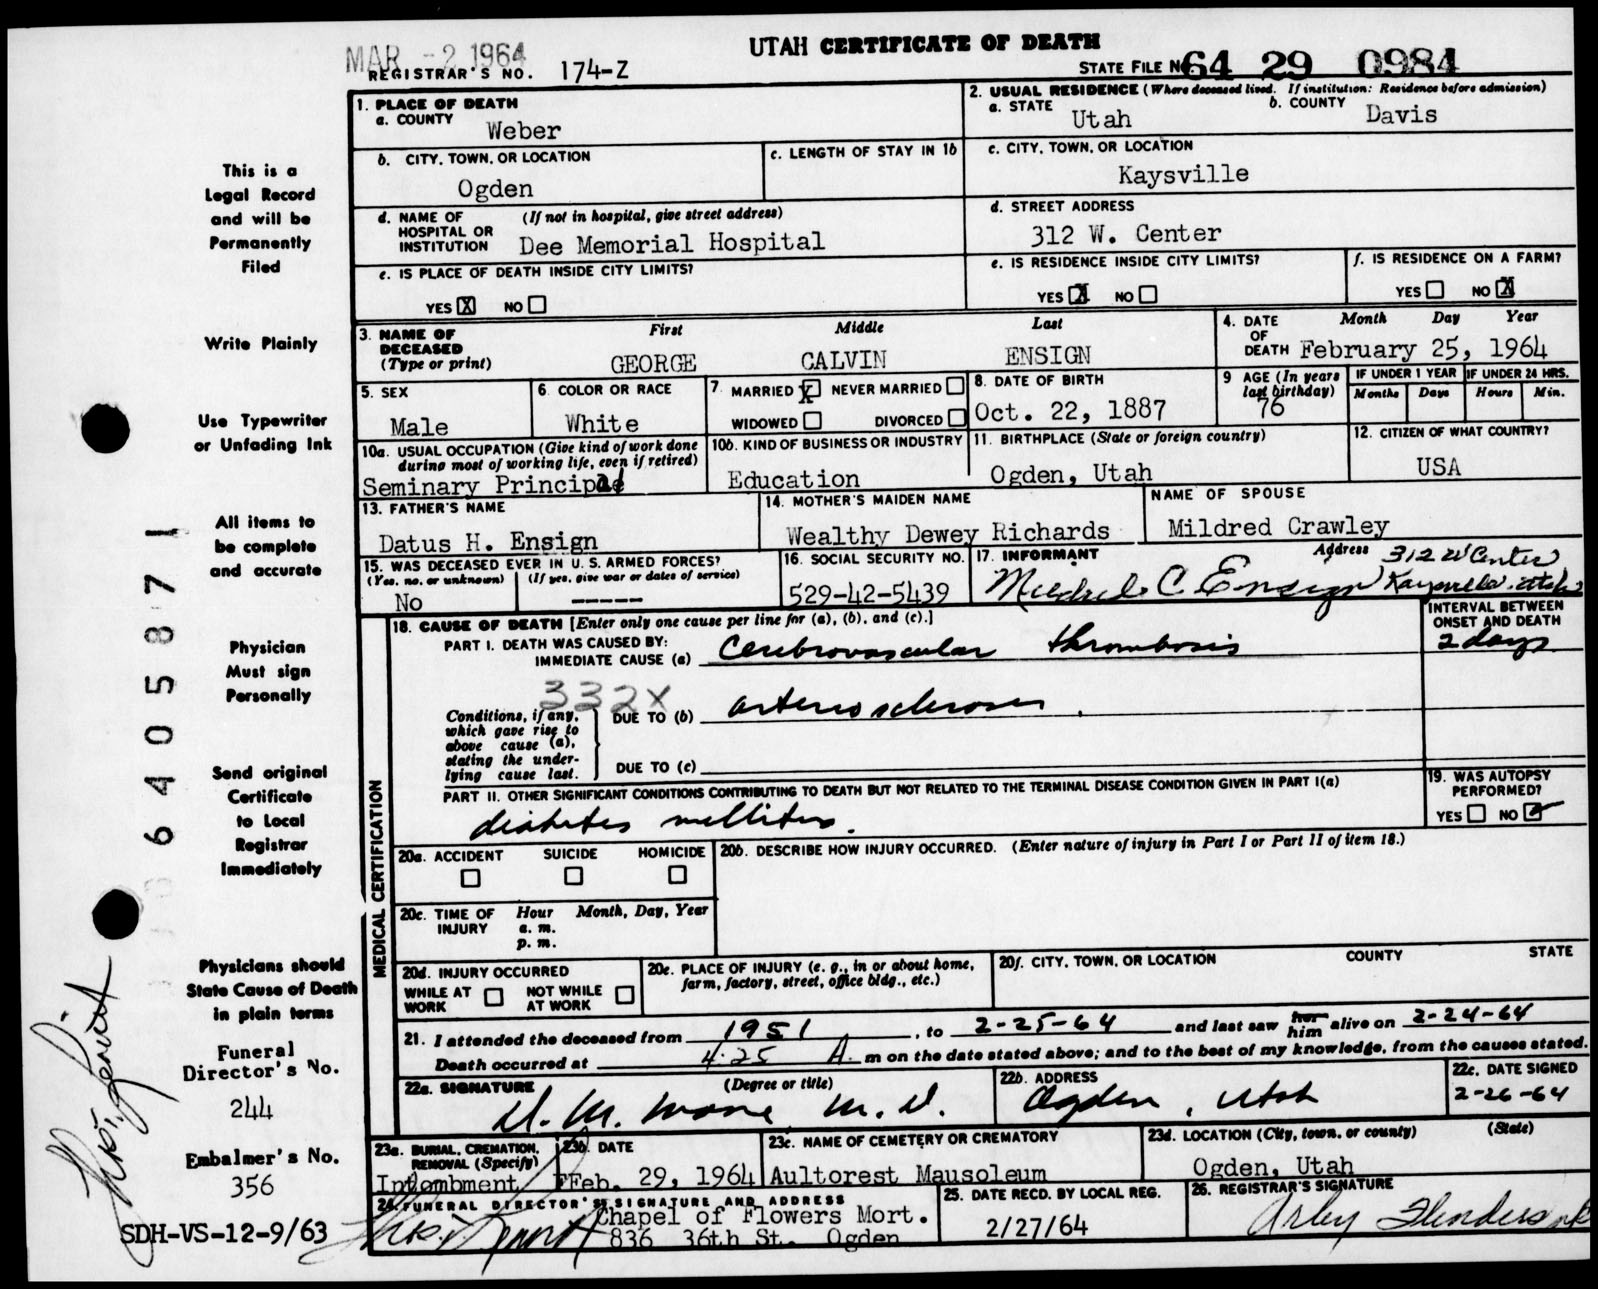 MAR - 2 1964
UTAH CERTIFICATE OF DEATH
REGISTRAR'S NO. 174-Z
STATE FILE NO 64 29 0984
1. PLACE OF DEATH
a. COUNTY
Weber
2. USUAL RESIDENCE (Where deceased lived. If institution: Residence before admission)
a. STATE Utah b. COUNTY Davis
b. CITY, TOWN, OR LOCATION
Ogden
c. LENGTH OF STAY IN 1b
c. CITY, TOWN, OR LOCATION
Kaysville
d. NAME OF HOSPITAL OR INSTITUTION (If not in hospital, give street address)
Dee Memorial Hospital
d. STREET ADDRESS
312 W. Center
e. IS PLACE OF DEATH INSIDE CITY LIMITS?
YES X NO
e. IS RESIDENCE INSIDE CITY LIMITS?
YES X NO
f. IS RESIDENCE ON A FARM?
YES NO X
3. NAME OF DECEASED (Type or print)
First Middle Last
GEORGE CALVIN ENSIGN
4. DATE OF DEATH
Month Day Year
February 25, 1964
5. SEX
Male
6. COLOR OR RACE
White
7. MARRIED X NEVER MARRIED
WIDOWED DIVORCED
8. DATE OF BIRTH
Oct. 22, 1887
9 AGE (In years last birthday)
76
IF UNDER 1 YEAR
Months Days
IF UNDER 24 HRS.
Hours Min.
10a. USUAL OCCUPATION (Give kind of work done during most of working life, even if retired)
Seminary Principal
10b. KIND OF BUSINESS OR INDUSTRY
Education
11. BIRTHPLACE (State or foreign country)
Ogden, Utah
12. CITIZEN OF WHAT COUNTRY?
USA
13. FATHER'S NAME
Datus H. Ensign
14. MOTHER'S MAIDEN NAME
Wealthy Dewey Richards
NAME OF SPOUSE
Mildred Crawley
15. WAS DECEASED EVER IN U.S. ARMED FORCES?
(Yes, no, or unknown) (If yes, give war or dates of service)
No -----
16. SOCIAL SECURITY NO.
529-42-5439
17. INFORMANT Address
Mildred C. Ensign 312 W Center
Kaysville, Utah
MEDICAL CERTIFICATION
18. CAUSE OF DEATH [Enter only one cause per line for (a), (b), and (c).]
INTERVAL BETWEEN ONSET AND DEATH
PART I. DEATH WAS CAUSED BY:
IMMEDIATE CAUSE (a) Cerebrovascular thrombosis 2 days
332X
Conditions, if any, which gave rise to above cause (a), stating the underlying cause last.
DUE TO (b) arteriosclerosis
DUE TO (c)
PART II. OTHER SIGNIFICANT CONDITIONS CONTRIBUTING TO DEATH BUT NOT RELATED TO THE TERMINAL DISEASE CONDITION GIVEN IN PART I(a)
diabetes mellitus.
19. WAS AUTOPSY PERFORMED?
YES NO ✓
20a. ACCIDENT SUICIDE HOMICIDE
20b. DESCRIBE HOW INJURY OCCURRED. (Enter nature of injury in Part I or Part II of item 18.)
20c. TIME OF INJURY Hour Month, Day, Year
a. m.
p. m.
20d. INJURY OCCURRED
WHILE AT WORK NOT WHILE AT WORK
20e. PLACE OF INJURY (e. g., in or about home, farm, factory, street, office bldg., etc.)
20f. CITY, TOWN, OR LOCATION COUNTY STATE
21. I attended the deceased from 1951, to 2-25-64 and last saw her him alive on 2-24-64
Death occurred at 4:25 A. m on the date stated above; and to the best of my knowledge, from the causes stated.
22a. SIGNATURE (Degree or title)
M.D.
22b. ADDRESS
Ogden, Utah
22c. DATE SIGNED
2-26-64
23a. BURIAL, CREMATION, REMOVAL (Specify)
Intombment
23b. DATE
Feb. 29, 1964
23c. NAME OF CEMETERY OR CREMATORY
Aultorest Mausoleum
23d. LOCATION (City, town, or county) (State)
Ogden, Utah
24. FUNERAL DIRECTOR'S SIGNATURE AND ADDRESS
Chapel of Flowers Mort.
836 36th St. Ogden
25. DATE RECD. BY LOCAL REG.
2/27/64
26. REGISTRAR'S SIGNATURE
This is a
Legal Record
and will be
Permanently
Filed
Write Plainly
Use Typewriter
or Unfading Ink
All items to
be complete
and accurate
Physician
Must sign
Personally
Send original
Certificate
to Local
Registrar
Immediately
Physicians should
State Cause of Death
in plain terms
Funeral
Director's No.
244
Embalmer's No.
356
SDH-VS-12-9/63
6405871